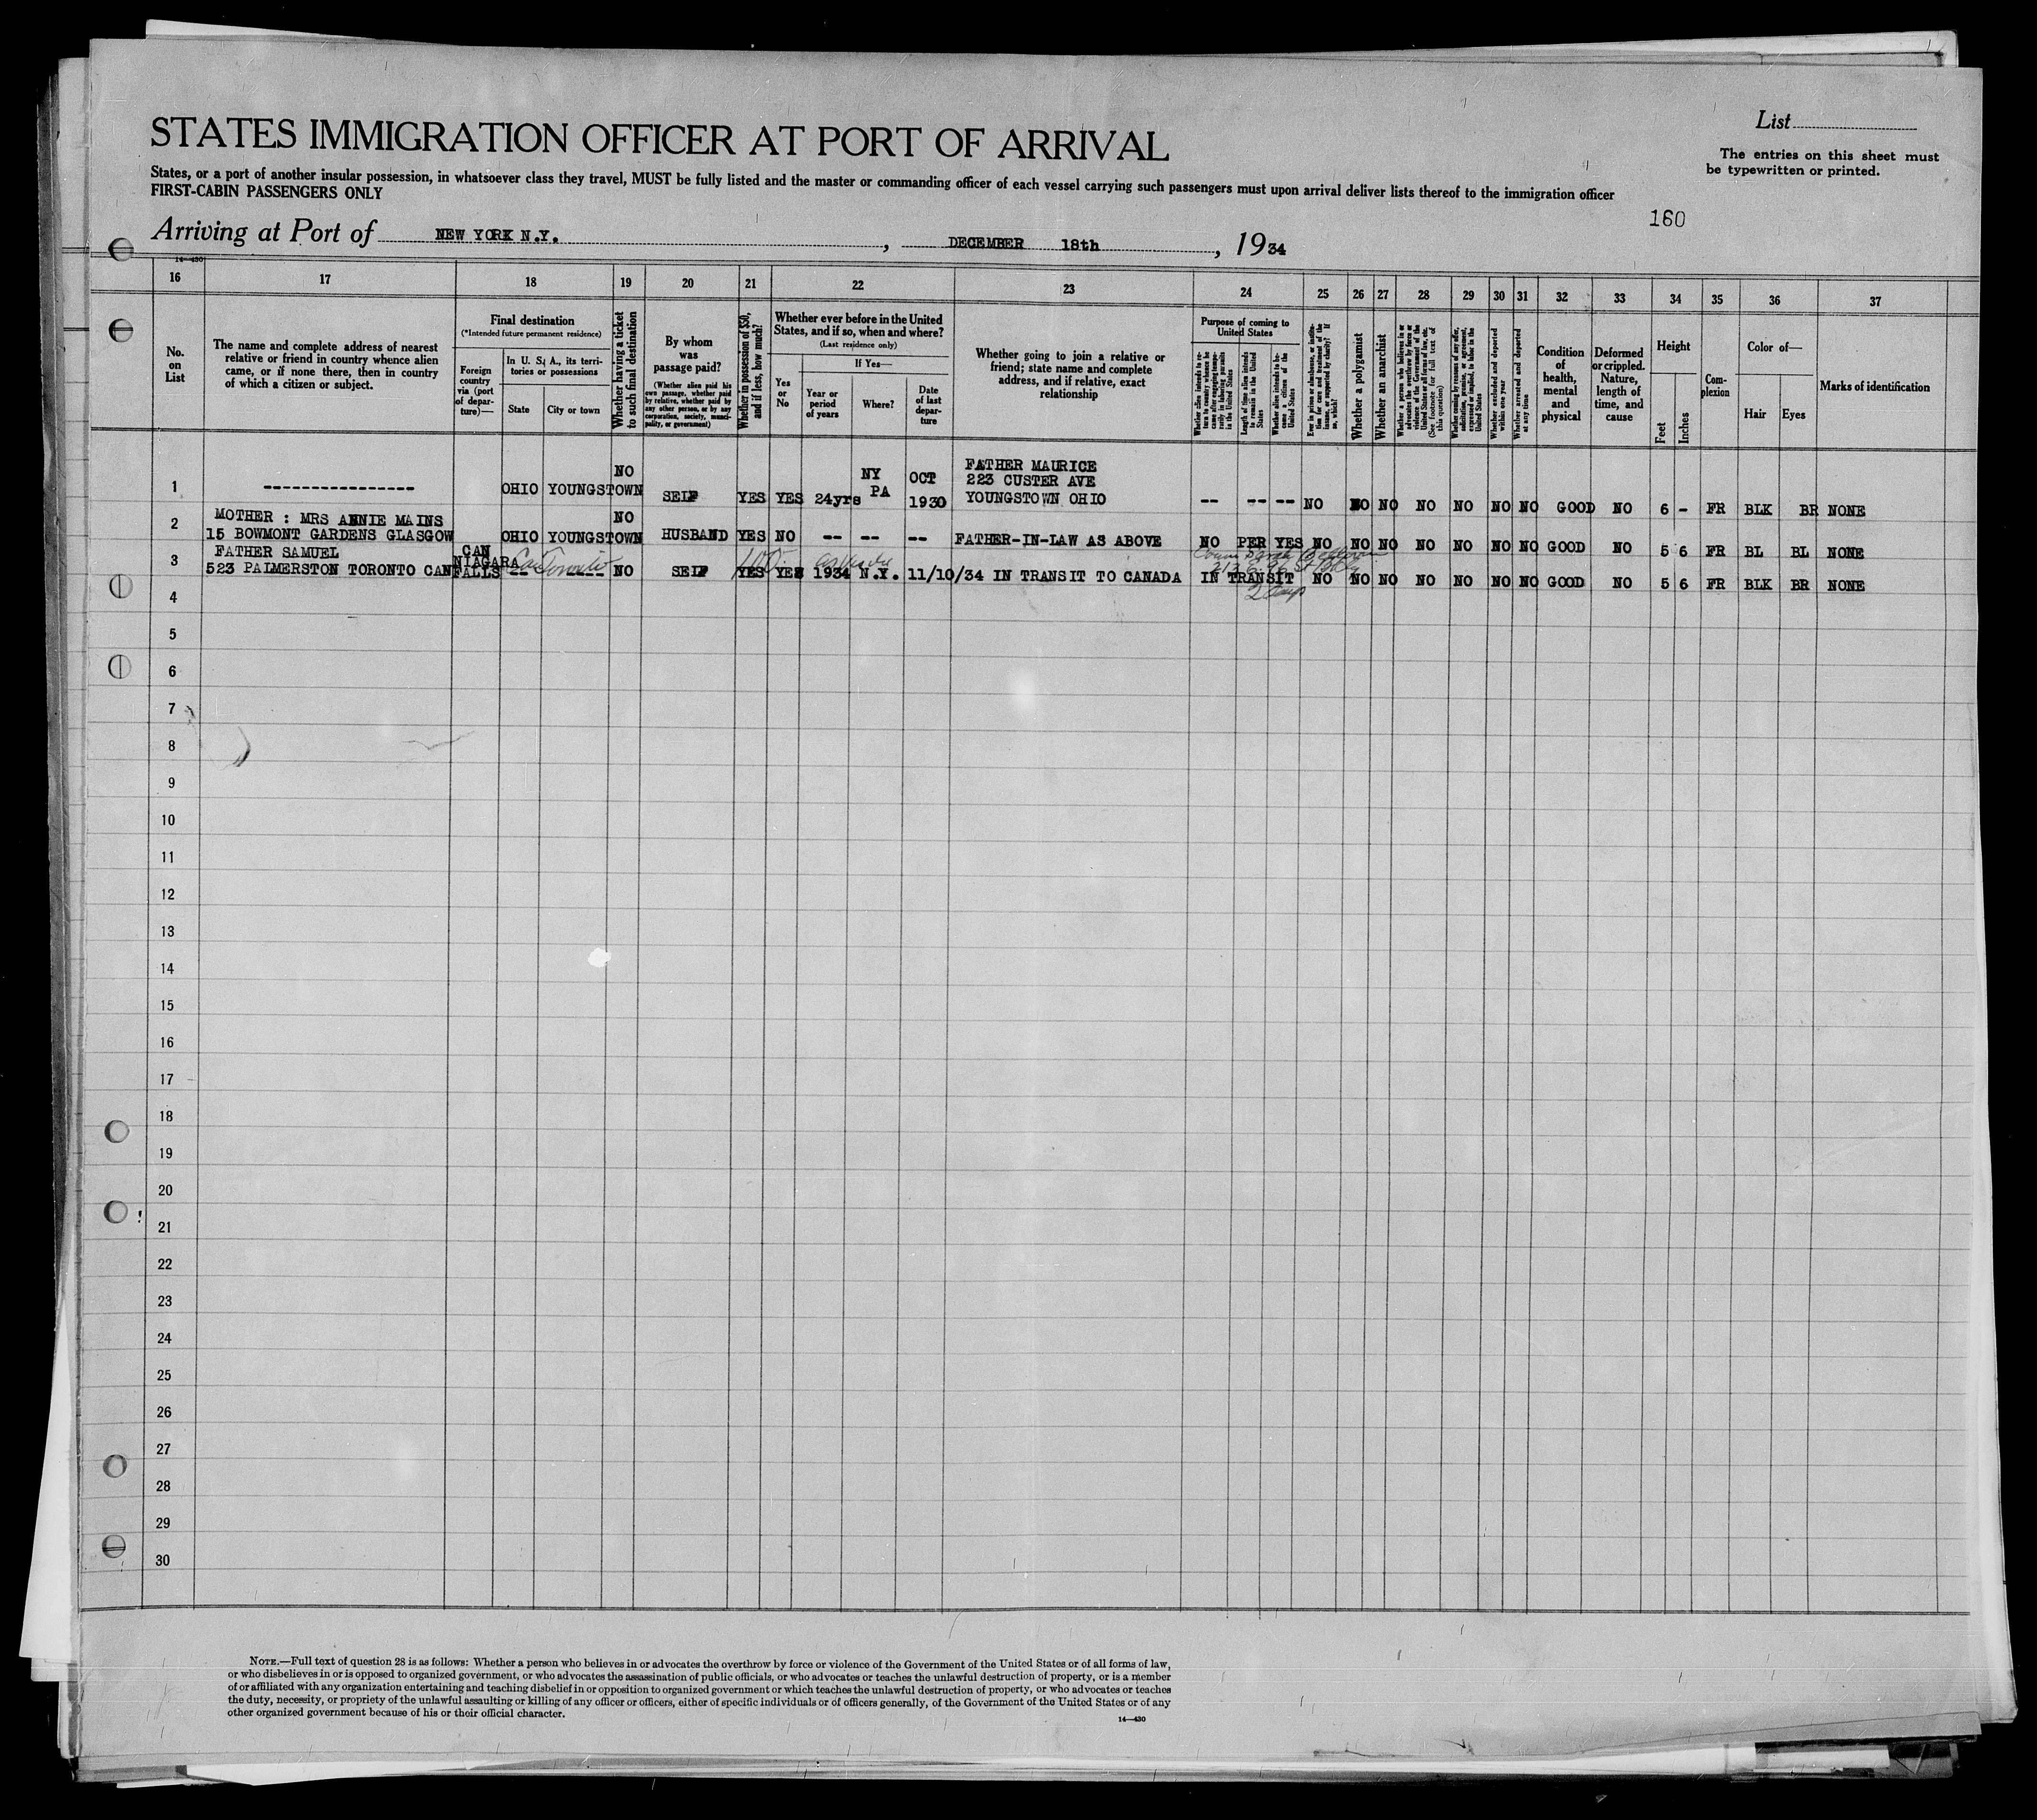 List
STATES IMMIGRATION OFFICER AT PORT OF ARRIVAL
The entries on this sheet must
be typewritten or printed.
States, or a port of another insular possession, in whatsoever class they travel, MUST be fully listed and the master or commanding officer of each vessel carrying such passengers must upon arrival deliver lists thereof to the immigration officer
FIRST-CABIN PASSENGERS ONLY
160
Arriving at Port of NEW YORK N.Y. , DECEMBER 18th , 1934
14—430
16 17 18 19 20 21 22 23 24 25 26 27 28 29 30 31 32 33 34 35 36 37
No. on List
The name and complete address of nearest
relative or friend in country whence alien
came, or if none there, then in country
of which a citizen or subject.
Final destination
(*Intended future permanent residence)
Foreign country via (port of departure)—
In U. S. A., its territories or possessions
State
City or town
Whether having a ticket to such final destination
By whom was passage paid?
(Whether alien paid his own passage, whether paid by relative, whether paid by any other person, or by any corporation, society, municipality, or government)
Whether in possession of $50, and if less, how much?
Whether ever before in the United States, and if so, when and where?
(Last residence only)
Yes or No
If Yes—
Year or period of years
Where?
Date of last departure
Whether going to join a relative or
friend; state name and complete
address, and if relative, exact
relationship
Purpose of coming to United States
Whether alien intends to return to country whence he came after engaging temporarily in laboring pursuits in the United States
Length of time alien intends to remain in the United States
Whether alien intends to become a citizen of the United States
Ever in prison or almshouse, or institution for care and treatment of the insane, or supported by charity? If so, which?
Whether a polygamist
Whether an anarchist
Whether a person who believes in or advocates the overthrow by force or violence of the Government of the United States or all forms of law, etc. (See footnote for full text of this question)
Whether coming by reason of any offer, solicitation, promise, or agreement, expressed or implied, to labor in the United States
Whether excluded and deported within one year
Whether arrested and deported at any time
Condition of health, mental and physical
Deformed or crippled. Nature, length of time, and cause
Height
Feet
Inches
Complexion
Color of—
Hair
Eyes
Marks of identification
1 ---------------- OHIO YOUNGSTOWN NO SELF YES YES 24yrs NY PA OCT 1930 FATHER MAURICE
223 CUSTER AVE
YOUNGSTOWN OHIO -- -- -- NO NO NO NO NO NO NO GOOD NO 6 - FR BLK BR NONE
2 MOTHER : MRS ANNIE MAINS
15 BOWMONT GARDENS GLASGOW OHIO YOUNGSTOWN NO HUSBAND YES NO -- -- -- FATHER-IN-LAW AS ABOVE NO PER YES NO NO NO NO NO NO NO GOOD NO 5 6 FR BL BL NONE
3 FATHER SAMUEL
523 PALMERSTON TORONTO CAN CAN NIAGARA FALLS -- Can Toronto NO SELF YES 100 YES 1934 N.Y. 11/10/34 IN TRANSIT TO CANADA IN TRANSIT NO NO NO NO NO NO NO GOOD NO 5 6 FR BLK BR NONE
2 days
4
5
6
7
8
9
10
11
12
13
14
15
16
17
18
19
20
21
22
23
24
25
26
27
28
29
30
NOTE.—Full text of question 28 is as follows: Whether a person who believes in or advocates the overthrow by force or violence of the Government of the United States or of all forms of law,
or who disbelieves in or is opposed to organized government, or who advocates the assassination of public officials, or who advocates or teaches the unlawful destruction of property, or is a member
of or affiliated with any organization entertaining and teaching disbelief in or opposition to organized government or which teaches the unlawful destruction of property, or who advocates or teaches
the duty, necessity, or propriety of the unlawful assaulting or killing of any officer or officers, either of specific individuals or of officers generally, of the Government of the United States or of any
other organized government because of his or their official character.
14—430